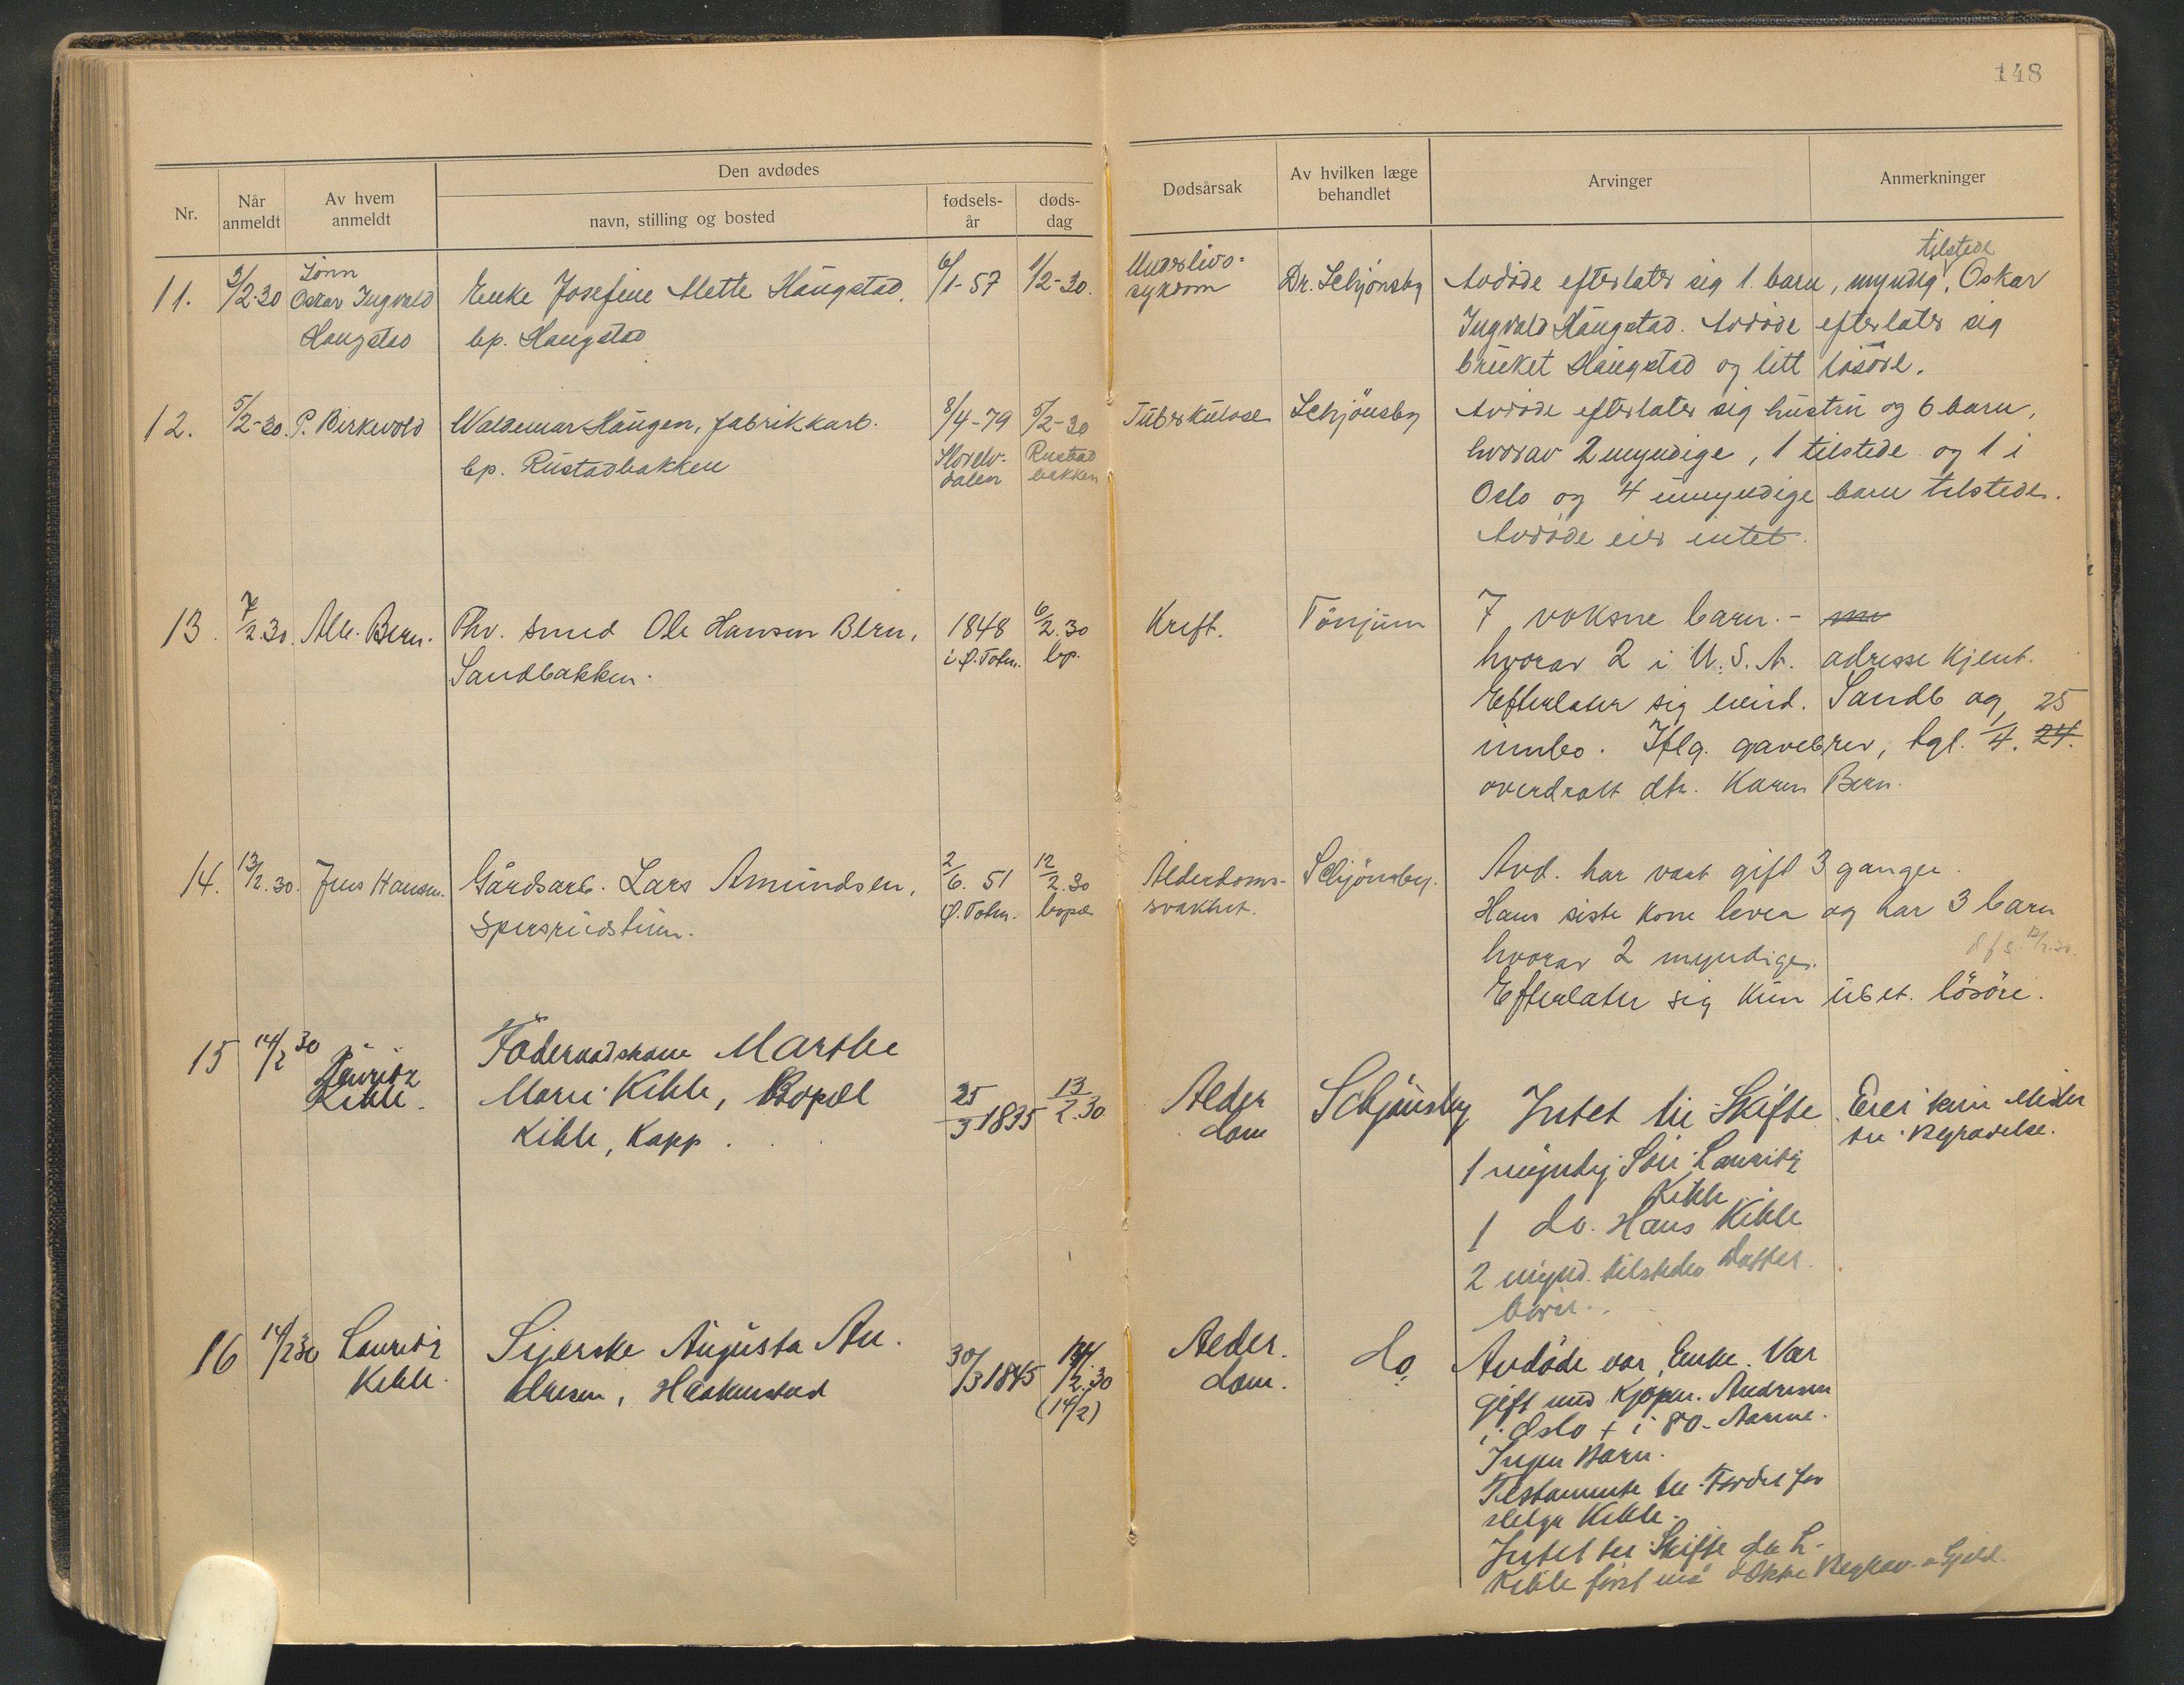 148
Den avdødes
Nr.
Når anmeldt
Av hvem anmeldt
navn, stilling og bosted
fødsels-år
døds-dag
Dødsårsak
Av hvilken læge behandlet
Arvinger
Anmerkninger
11. 3/2-30 Sönn Oskar Ingvald Haugstad
Enke Josefine Mette Haugstad,
bp. Haugstad
6/1-57 1/2-30.
Underlivs-
sykdom
Dr. Schjönsby
tilstede
Avdöde efterlater sig 1 barn, myndig, Oskar
Ingvald Haugstad. Avdöde efterlater sig
bruket Haugstad og litt lösöre.
12. 5/2-30. P. Birkevold
Waldemar Haugen, fabrikkarb.
bp. Rustadbakken
8/4-79 5/2-30
dalen
Rustad
bakken
Tuberkulose Schjönsby
Avdöde efterlater sig hustru og 6 barn,
hvorav 2 myndige, 1 tilstede og 1 i
Oslo og 4 umyndige barn tilstede.
Avdöde eier intet.
13. 7/2.30. Alb. Bern.
Fhv. smed Ole Hansen Bern,
Sandbakken.
1848 6/2.30
i Ø. Toten. bp.
Kreft. Tönjum
7 voksne barn. -
hvorav 2 i U.S.A. adresse kjent.
Efterlater sig eiend. Sandb og
innbo. Iflg. gavebrev, tgl. /4. 24. 25
overdratt dtr. Karen Bern.
14. 13/2.30. Jens Hansen.
Gårdsarb. Lars Amundsen,
Spersrudstuen.
2/6. 51 12/2.30
Ø. Toten. bopæl
Alderdoms-
svakhet.
Schjönsby.
Avd. har vært gift 3 ganger.
Hans siste kone lever og har 3 barn
hvorav 2 myndige.
Efterlater sig kun ubet. lösöre.
15 14/2 30 Lauritz
Kihle.
Föderaadskone Marthe
Marie Kihle, Bopæl
Kihle, Kapp.
25/3 1835 13/2.30
Alder
dom
Schjönsby
Intet til Skifte
1 myndig Sön Lauritz
Kihle
1 do. Hans Kihle
2 mynd. tilstede Datter
börn.
Eier kun Midler
til Begravelse.
16 14/2 30 Lauritz
Kihle.
Syerske Augusta An.
dresen, Haakenstad
30/3 1845 14/2.30
(14/2)
Alder.
dom.
do.
Avdöde var Enke. Var
gift med Kjøpm. Andresen
i Oslo + i 80-Aarene.
Ingen Barn.
Testamente til Fordel for
Helga Kihle.
Intet til Skifte da L.
Kihle först må dekke Begrav. o Gjeld.